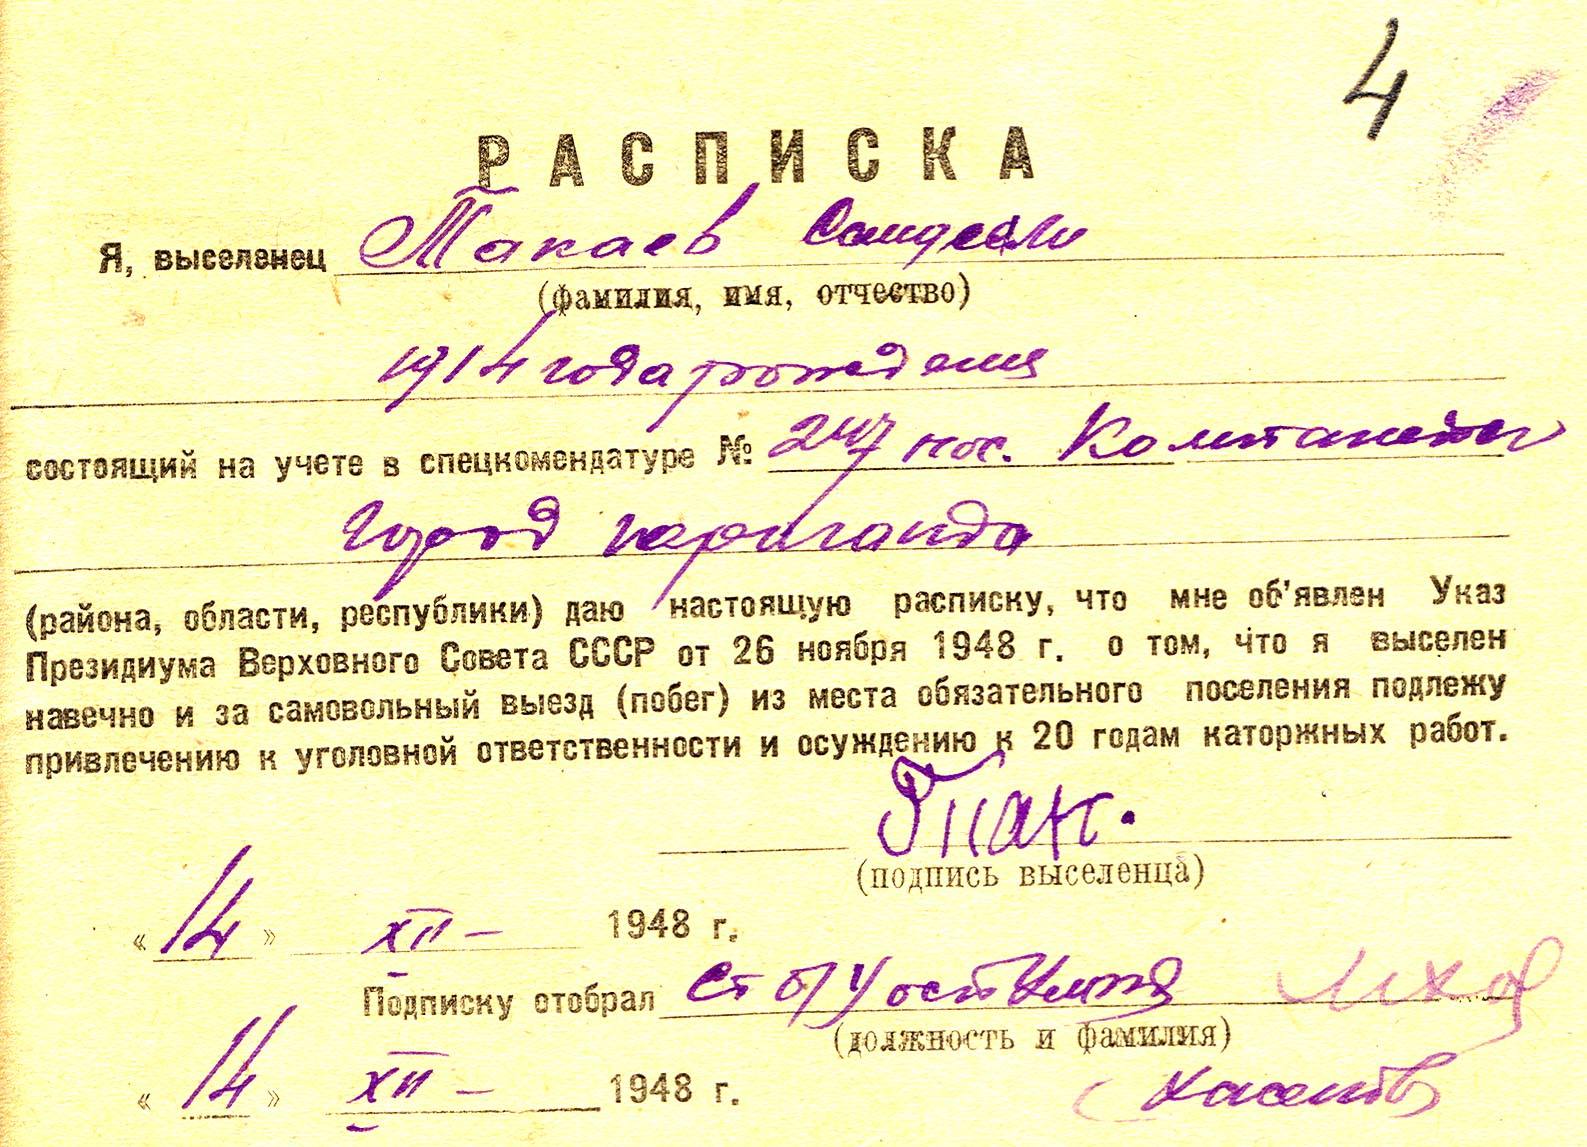 4
РАСПИСКА
Я, выселенец Такаев Саидали
(фамилия, имя, отчество)
1914 года рождения
состоящий на учете в спецкомендатуре № 247 пос. Компанейск
город Караганда
(района, области, республики) даю настоящую расписку, что мне об'явлен Указ
Президиума Верховного Совета СССР от 26 ноября 1948 г. о том, что я выселен
навечно и за самовольный выезд (побег) из места обязательного поселения подлежу
привлечению к уголовной ответственности и осуждению к 20 годам каторжных работ.
Так.
(подпись выселенца)
« 14 » XII – 1948 г.
Подписку отобрал Ст о/у
(должность и фамилия)
« 14 » XII – 1948 г.